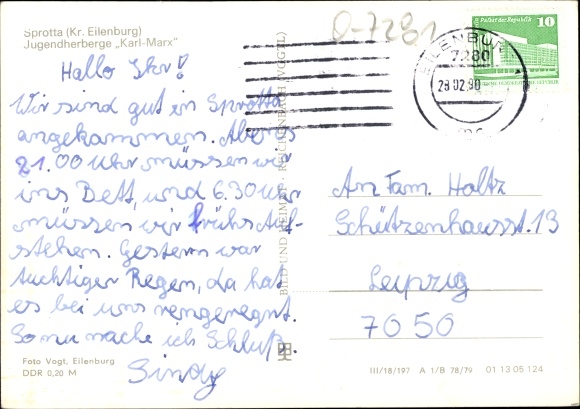 Sprotta (Kr. Eilenburg)
Jugendherberge „Karl-Marx"
O-7281
EILENBURG
7280
28.02.90
Palast der Republik
10
Hallo Ihr!
Wir sind gut in Sprotta
angekommen. Abends
21.00 Uhr müssen wir
ins Bett, und 6.30 Uhr
müssen wir früh Auf-
stehen. Gestern war
tuchtiger Regen, da hat
es bei uns reingeregnt.
So nu mache ich Schluß.
Sindy
An Fam. Holtz
Schützenhausst. 13
Leipzig
7050
BILD UND HEIMAT REICHENBACH (VOGTL)
Foto Vogt, Eilenburg
DDR 0,20 M
III/18/197 A 1/B 78/79 01 13 05 124